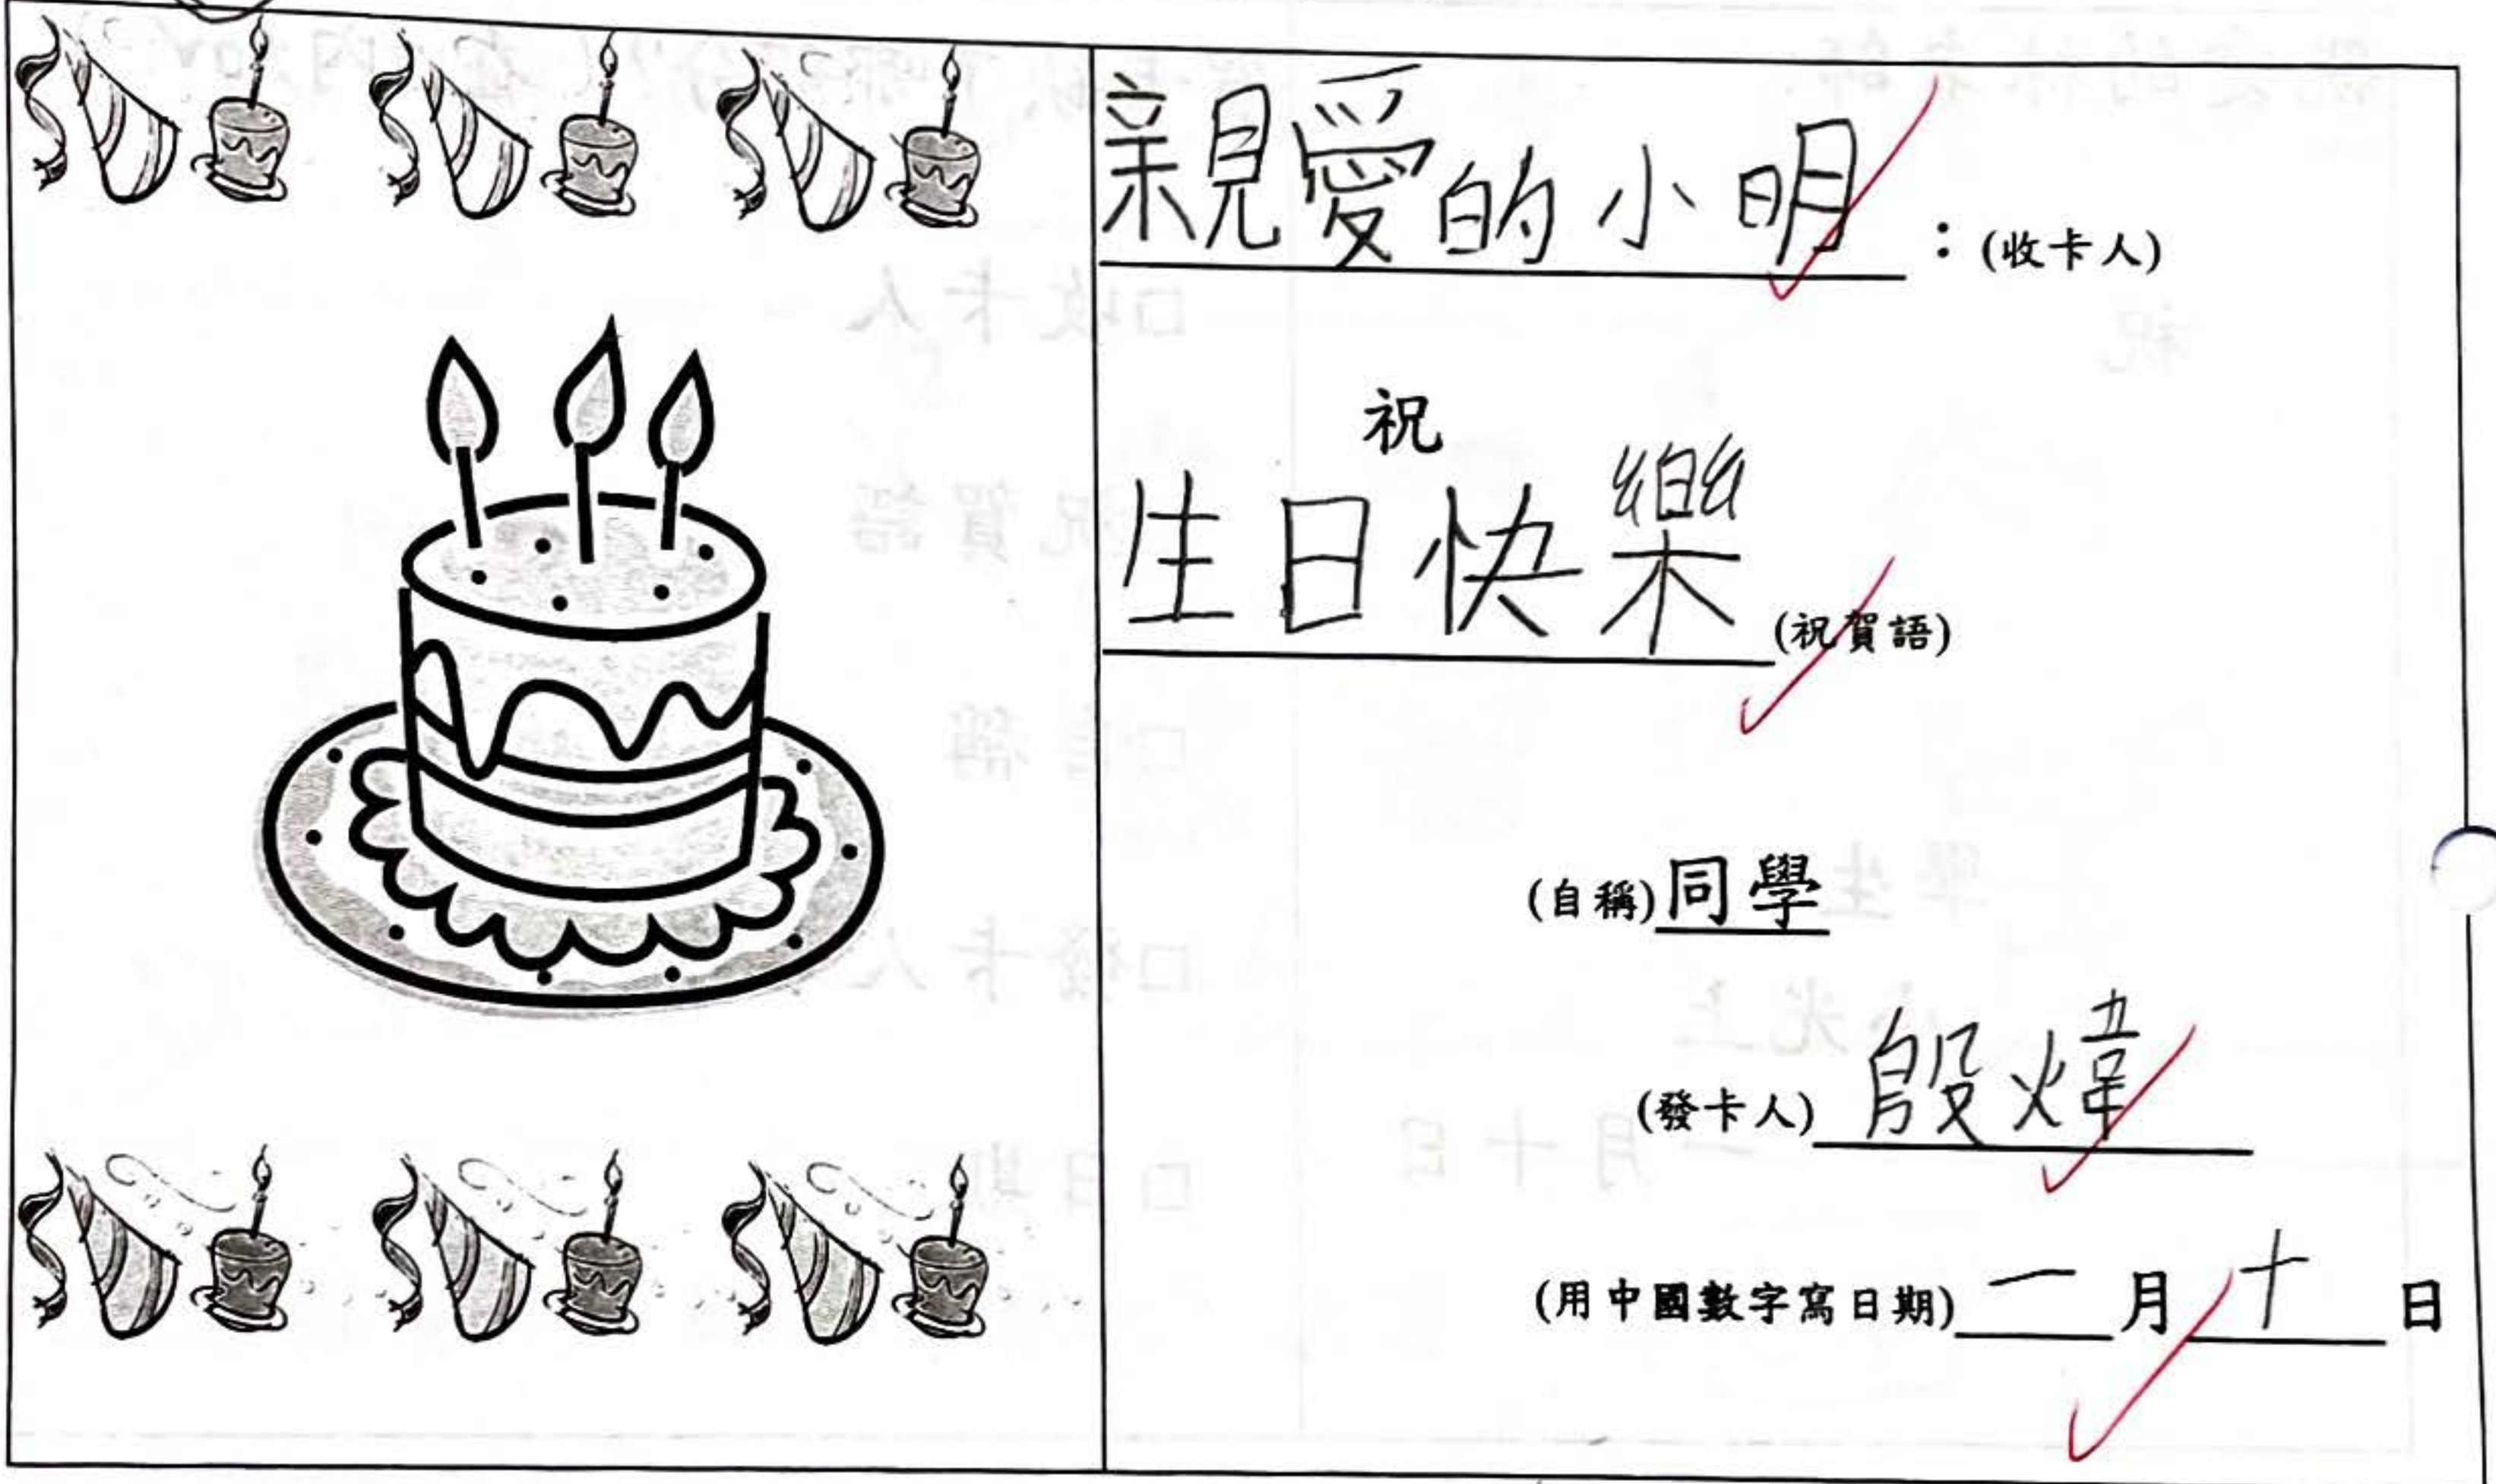 親愛的小明：(收卡人)
祝
生日快樂(祝賀語)
(自稱)同學
(發卡人)殷煒
(用中國數字寫日期)一月十日